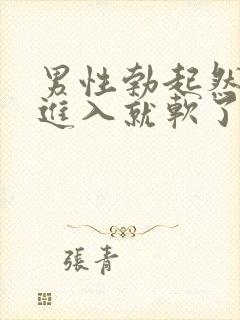 男性勃起然
進入就軟了
張青